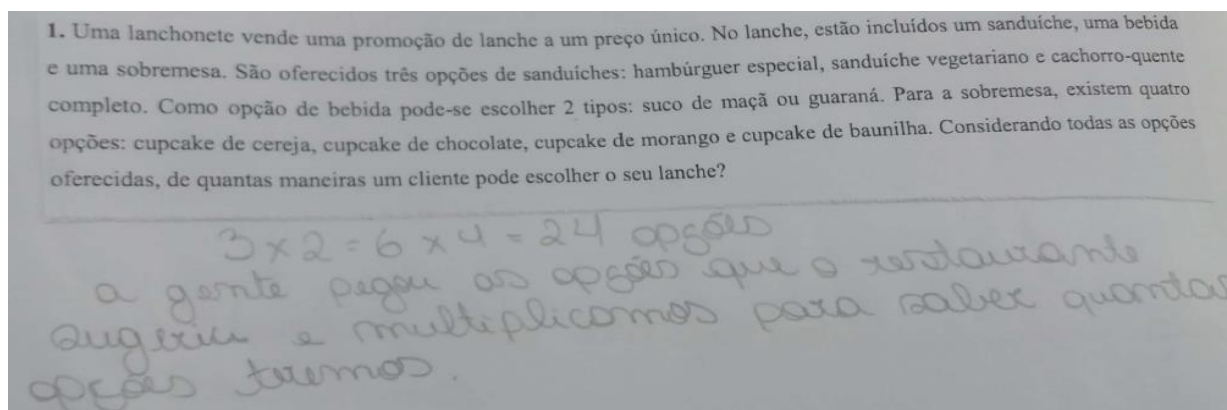 1. Uma lanchonete vende uma promoção de lanche a um preço único. No lanche, estão incluídos um sanduíche, uma bebida
e uma sobremesa. São oferecidos três opções de sanduíches: hambúrguer especial, sanduíche vegetariano e cachorro-quente
completo. Como opção de bebida pode-se escolher 2 tipos: suco de maçã ou guaraná. Para a sobremesa, existem quatro
opções: cupcake de cereja, cupcake de chocolate, cupcake de morango e cupcake de baunilha. Considerando todas as opções
oferecidas, de quantas maneiras um cliente pode escolher o seu lanche?
3 x 2 = 6 x 4 = 24 opções
a gente pegou as opções que o restaurante
sugeriu e multiplicamos para saber quantas
opções teremos.